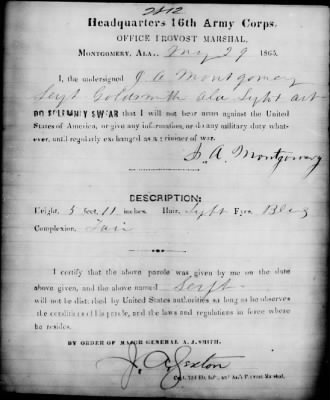 2812
Headquarters 16th Army Corps,
OFFICE PROVOST MARSHAL,
MONTGOMERY, ALA., May 29 1865.
I, the undersigned J. A. Montgomery
Sergt Goldsmith Ala Light art
DO SOLEMNLY SWEAR that I will not bear arms against the United
States of America, or give any information, or do any military duty what-
ever, until regularly exchanged as a prisoner of war.
J. A. Montgomery
DESCRIPTION:
Height, 5 feet, 11 inches. Hair, Light Eyes, Blue
Complexion, Fair
I certify that the above parole was given by me on the date
above given, and the above named Sergt
will not be disturbed by United States authorities so long as he observes
the conditions of his parole, and the laws and regulations in force where
he resides.
BY ORDER OF MAJOR GENERAL A. J. SMITH.
J. A. Sexton
Capt. 72d Ills. Inf'., and Ass't Provost Marshal.